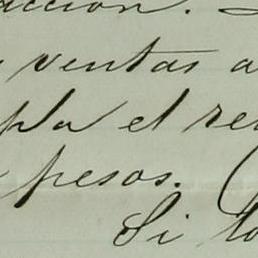 accion.
ventas a
pla el re
pesos. (
Si to